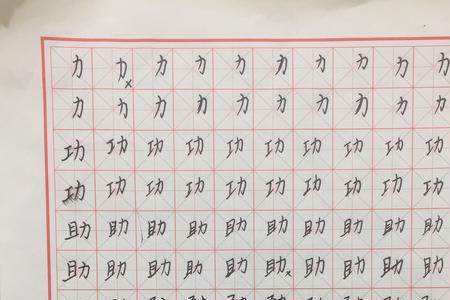 力力力力力力力力力力
力力力力力力力力力力
功功功功功功功功功功
功功功功功功功功功功
助助助助助助助助助助
助助助助助助助助助助